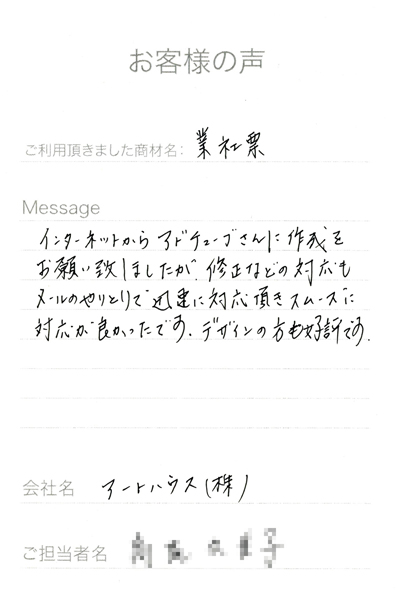 お客様の声
ご利用頂きました商材名: 業社票
Message
インターネットからアドチューブさんに作成を
お願い致しましたが、修正などの対応も
メールのやりとりで迅速に対応頂きスムーズに
対応が良かったです。デザインの方も好評です。
会社名 アートハウス(株)
ご担当者名